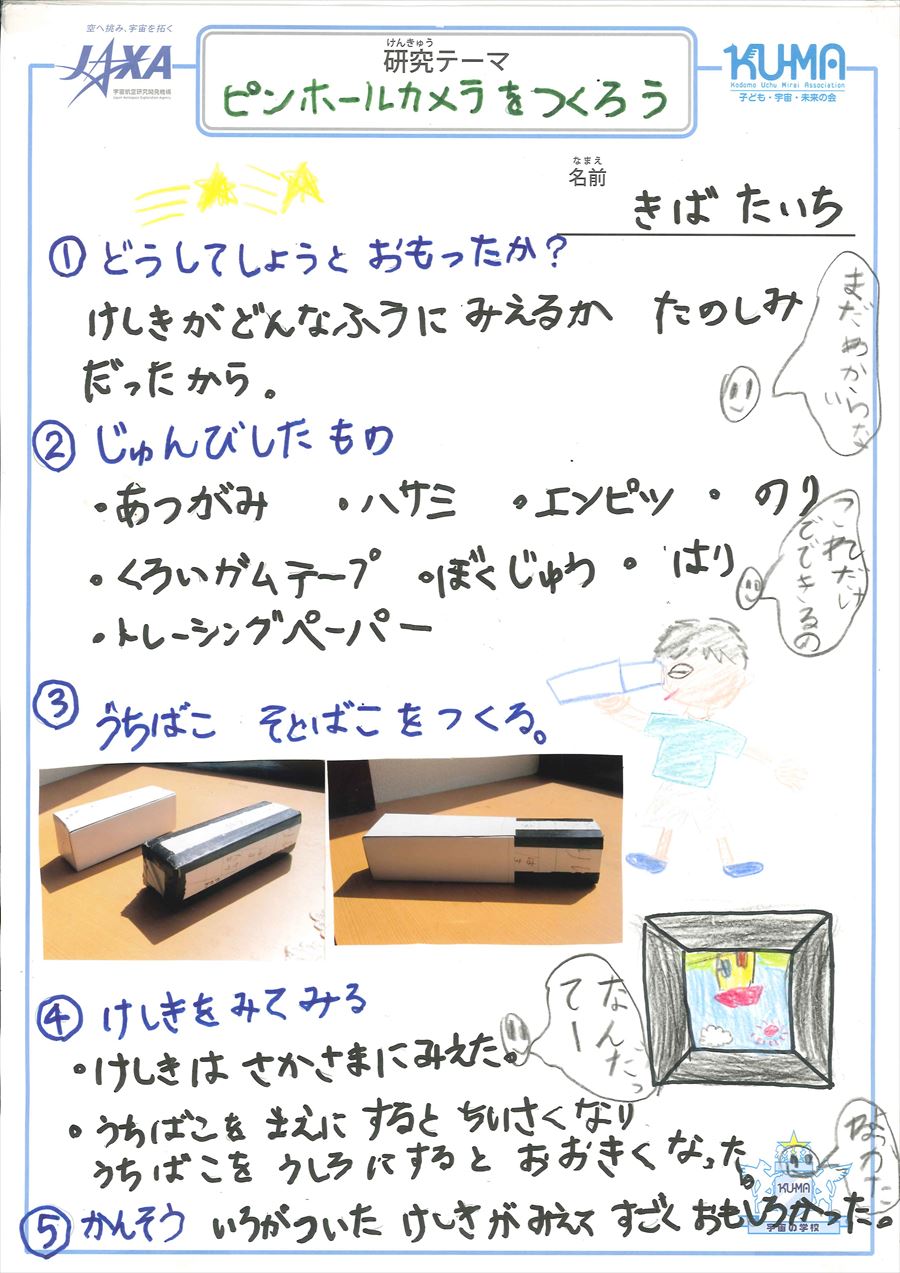 空へ挑み、宇宙を拓く
JAXA
宇宙航空研究開発機構
Japan Aerospace Exploration Agency
けんきゅう
研究テーマ
ピンホールカメラをつくろう
KU-MA
Kodomo Uchu Mirai Association
子ども・宇宙・未来の会
なまえ
名前
きば たいち
① どうしてしょうと おもったか?
けしきがどんなふうに みえるか たのしみ
だったから。
② じゅんびしたもの
・あつがみ ・ハサミ ・エンピツ ・のり
これだけ
でできるの
・くろいガムテープ ・ぼくじゅう ・はり
・トレーシングペーパー
③ うちばこ そとばこをつくる。
④ けしきをみてみる
なんだっ
てー
・けしきは さかさまにみえた。
・うちばこを まえに すると ちいさくなり
うちばこを うしろにすると おおきくなった。
KU-MA
宇宙の学校
⑤ かんそう いろがついた けしきがみえて すごく おもしろかった。